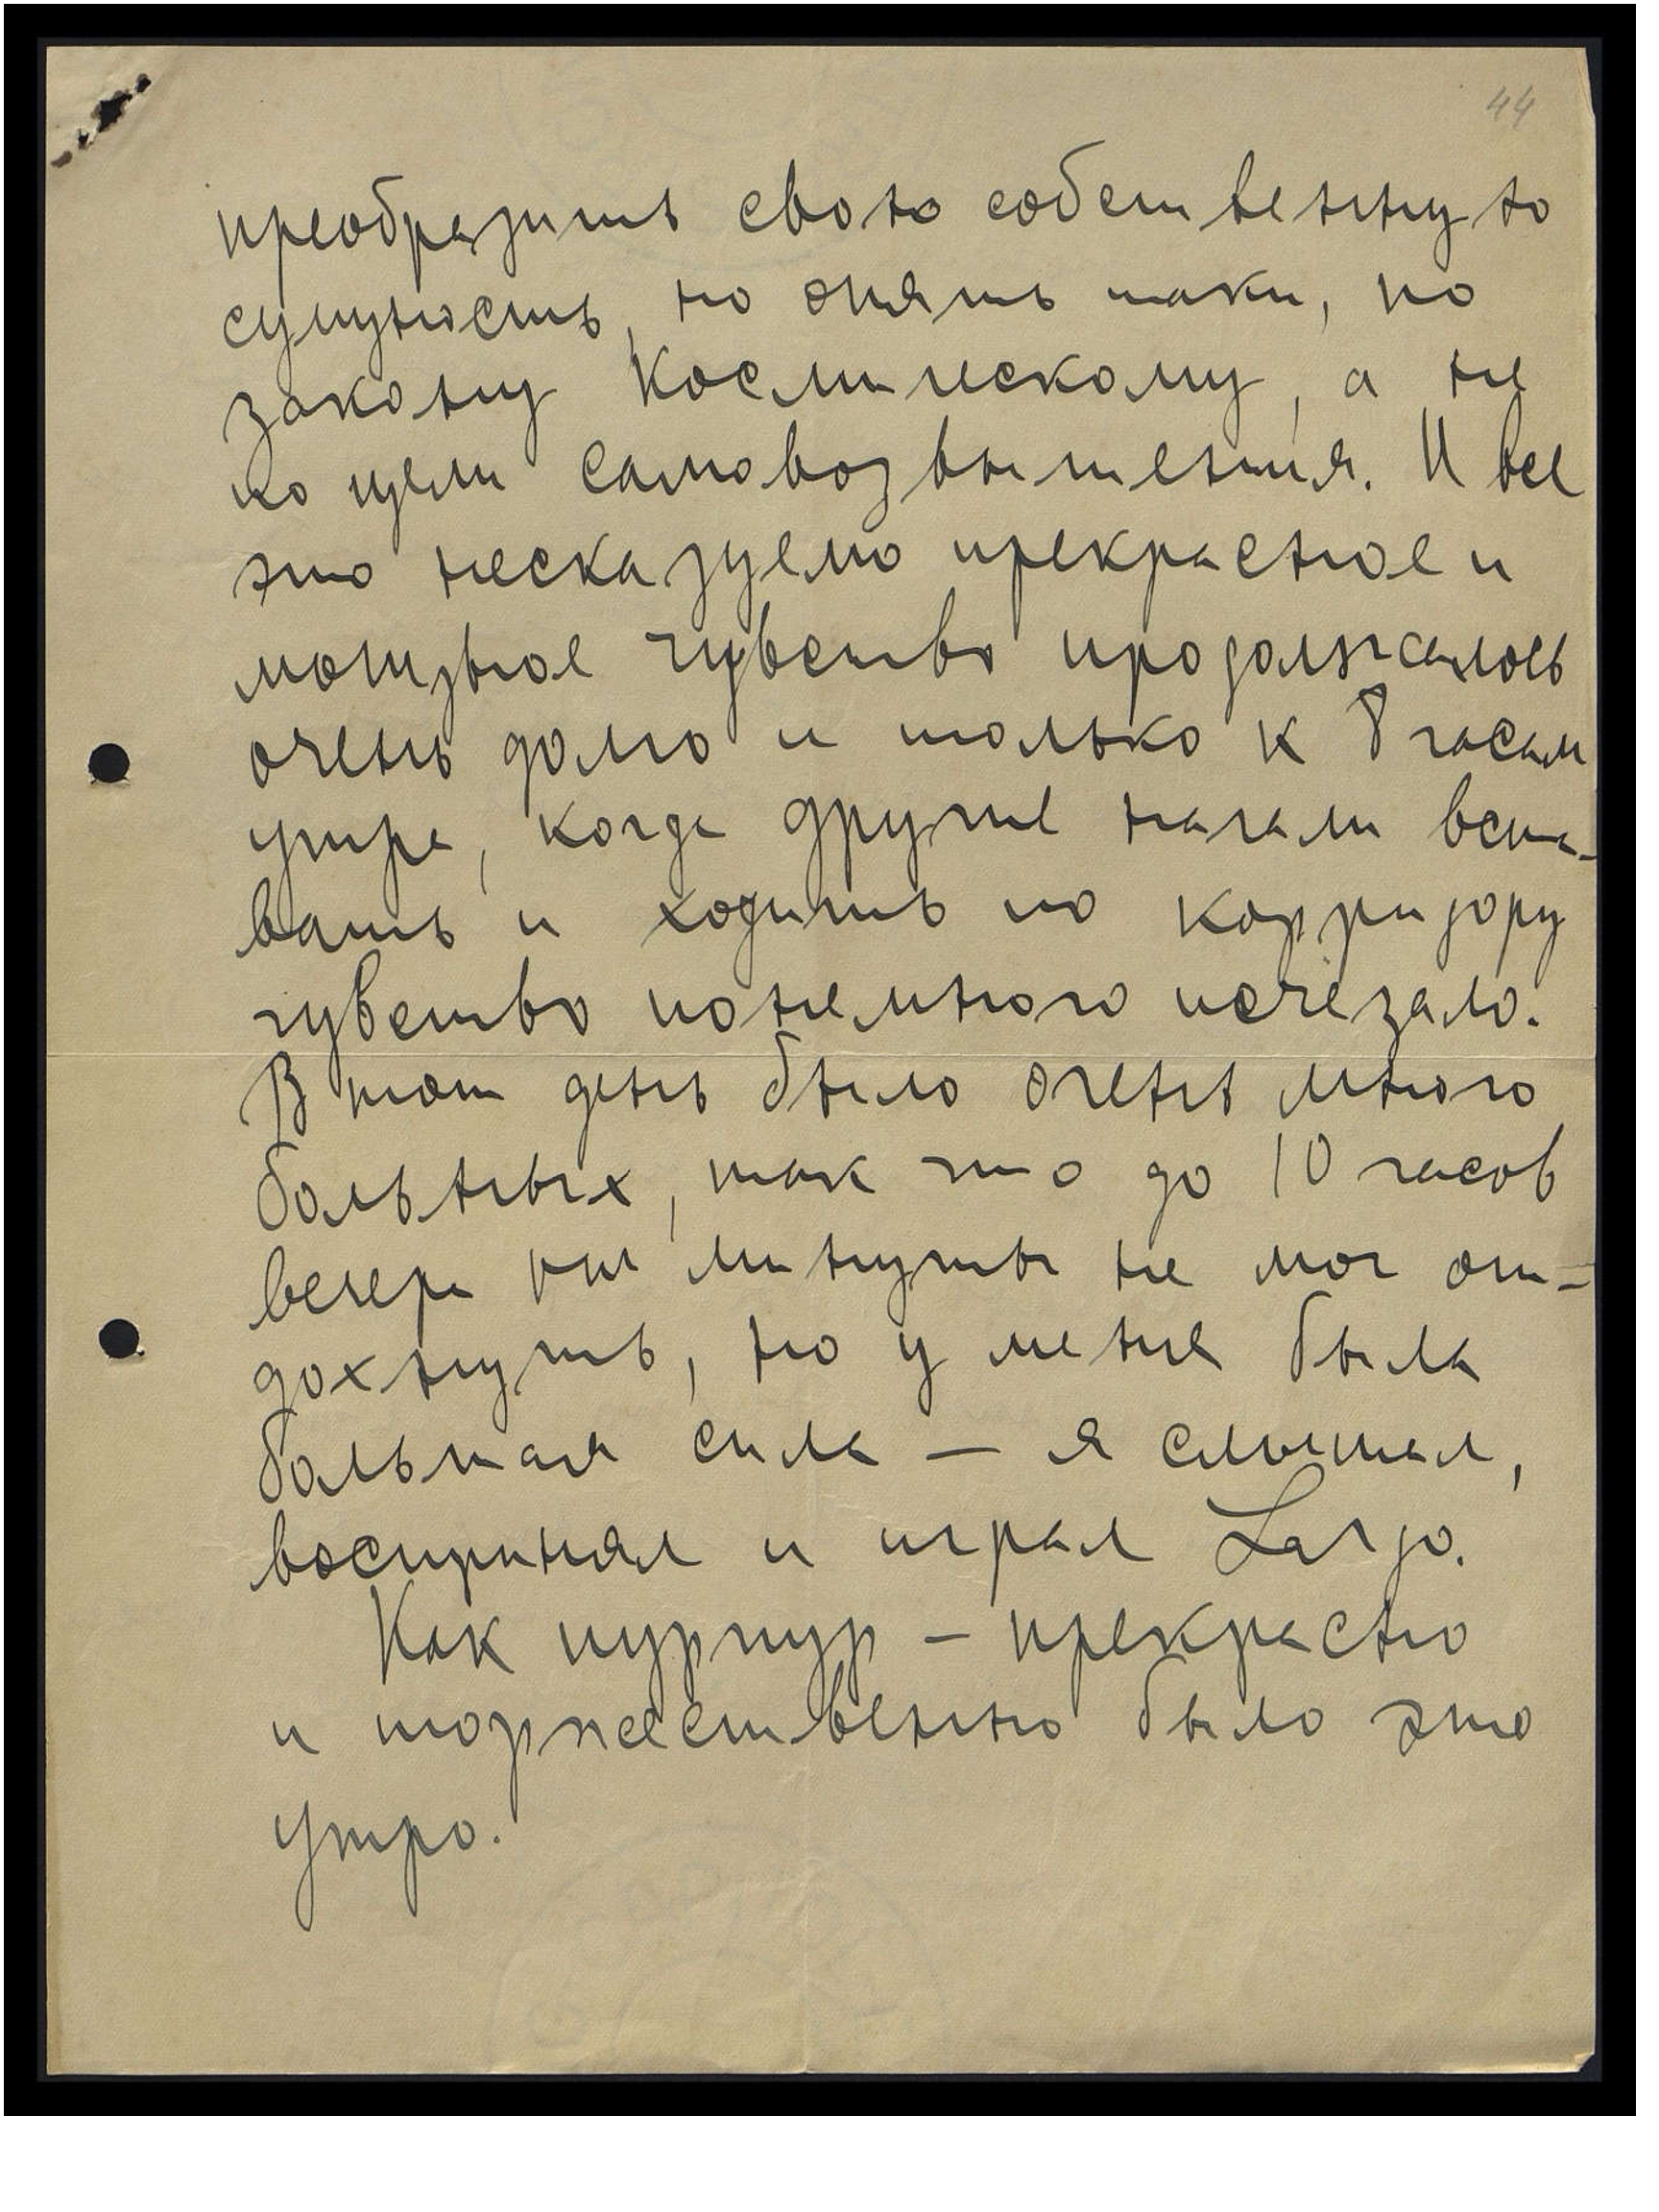 44
преобразить свою собственную
сущность, но опять таки, по
закону Космическому, а не
по цели самовозвышения. И все
это несказуемо прекрасное и
мощное чувство продолжалось
очень долго и только к 8 часам
утра, когда другие начали вста-
вать и ходить по корридору
чувство понемного исчезало.
В тот день было очень много
больных, так что до 10 часов
вечера ни минуты не мог от-
дохнуть, но у меня была
большая сила — я слышал,
воспринял и играл Largo.
Как пурпур — прекрасно
и торжественно было это
утро.